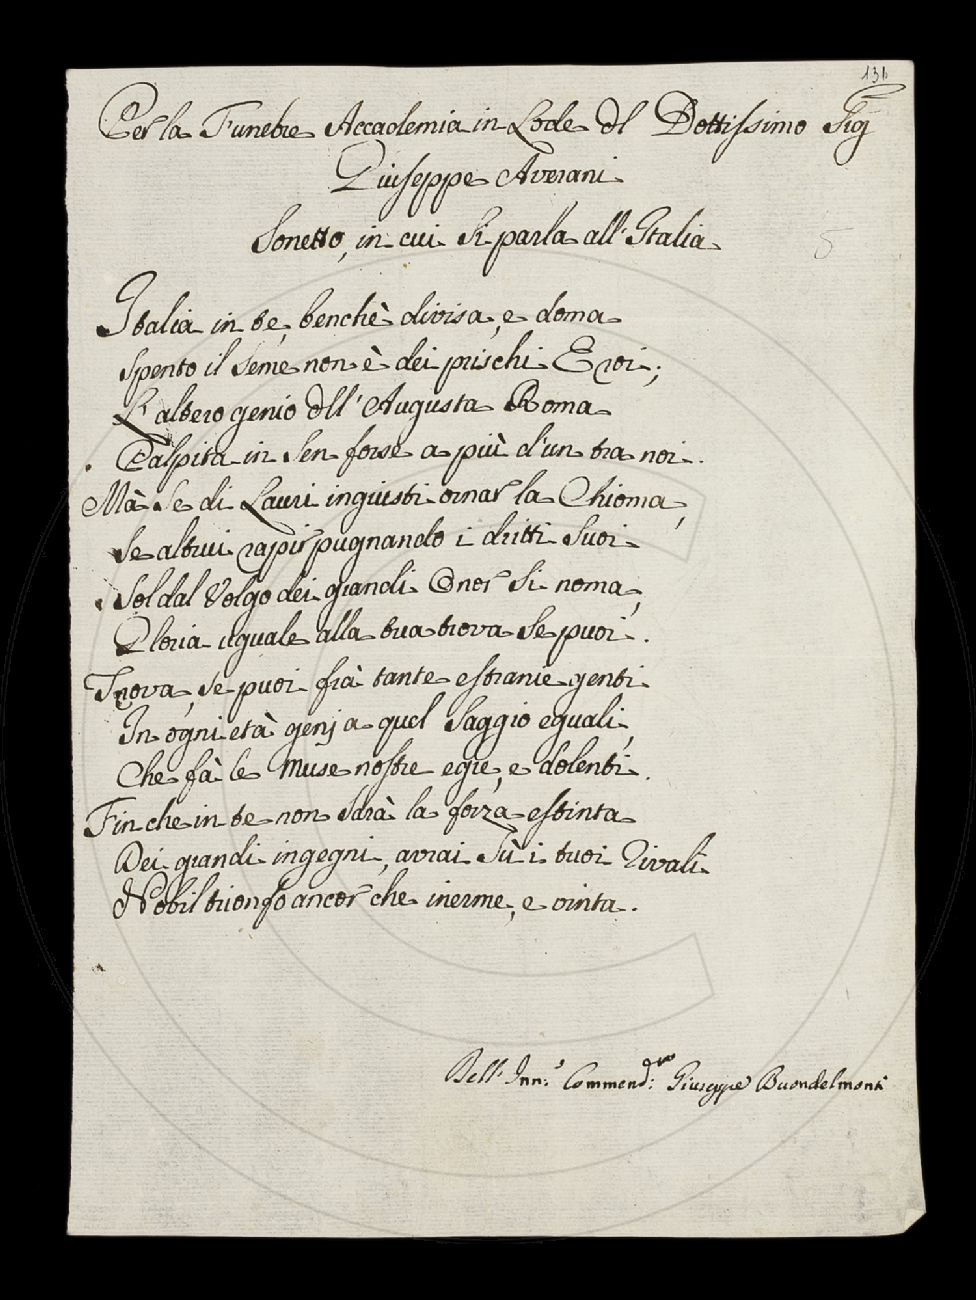 131
Per la Funebre Accademia in Lode dl Dottissimo Sig
Giuseppe Averani
Sonetto, in cui si parla all'Italia
5
Italia in te, benchè divisa, e doma
Spento il seme non è dei prischi Eroi;
L'altero genio dll'Augusta Roma
Palpita in sen forse a più d'un tra noi.
Mà se di Lauri ingiusti ornar la Chioma,
Se altrui rapir pugnando i dritti suoi
Sol dal Volgo dei grandi Onor si noma,
Gloria uguale alla tua trova se puoi.
Trova, se puoi frà tante estranie genti
In ogni età genj a quel Saggio eguali,
Che fà le Muse nostre egre, e dolenti.
Fin che in te non sarà la forza estinta
Dei grandi ingegni, avrai sù i tuoi Rivali
Nobil trionfo ancor che inerme, e vinta.
Dell' Commend: Giuseppe Buondelmonti